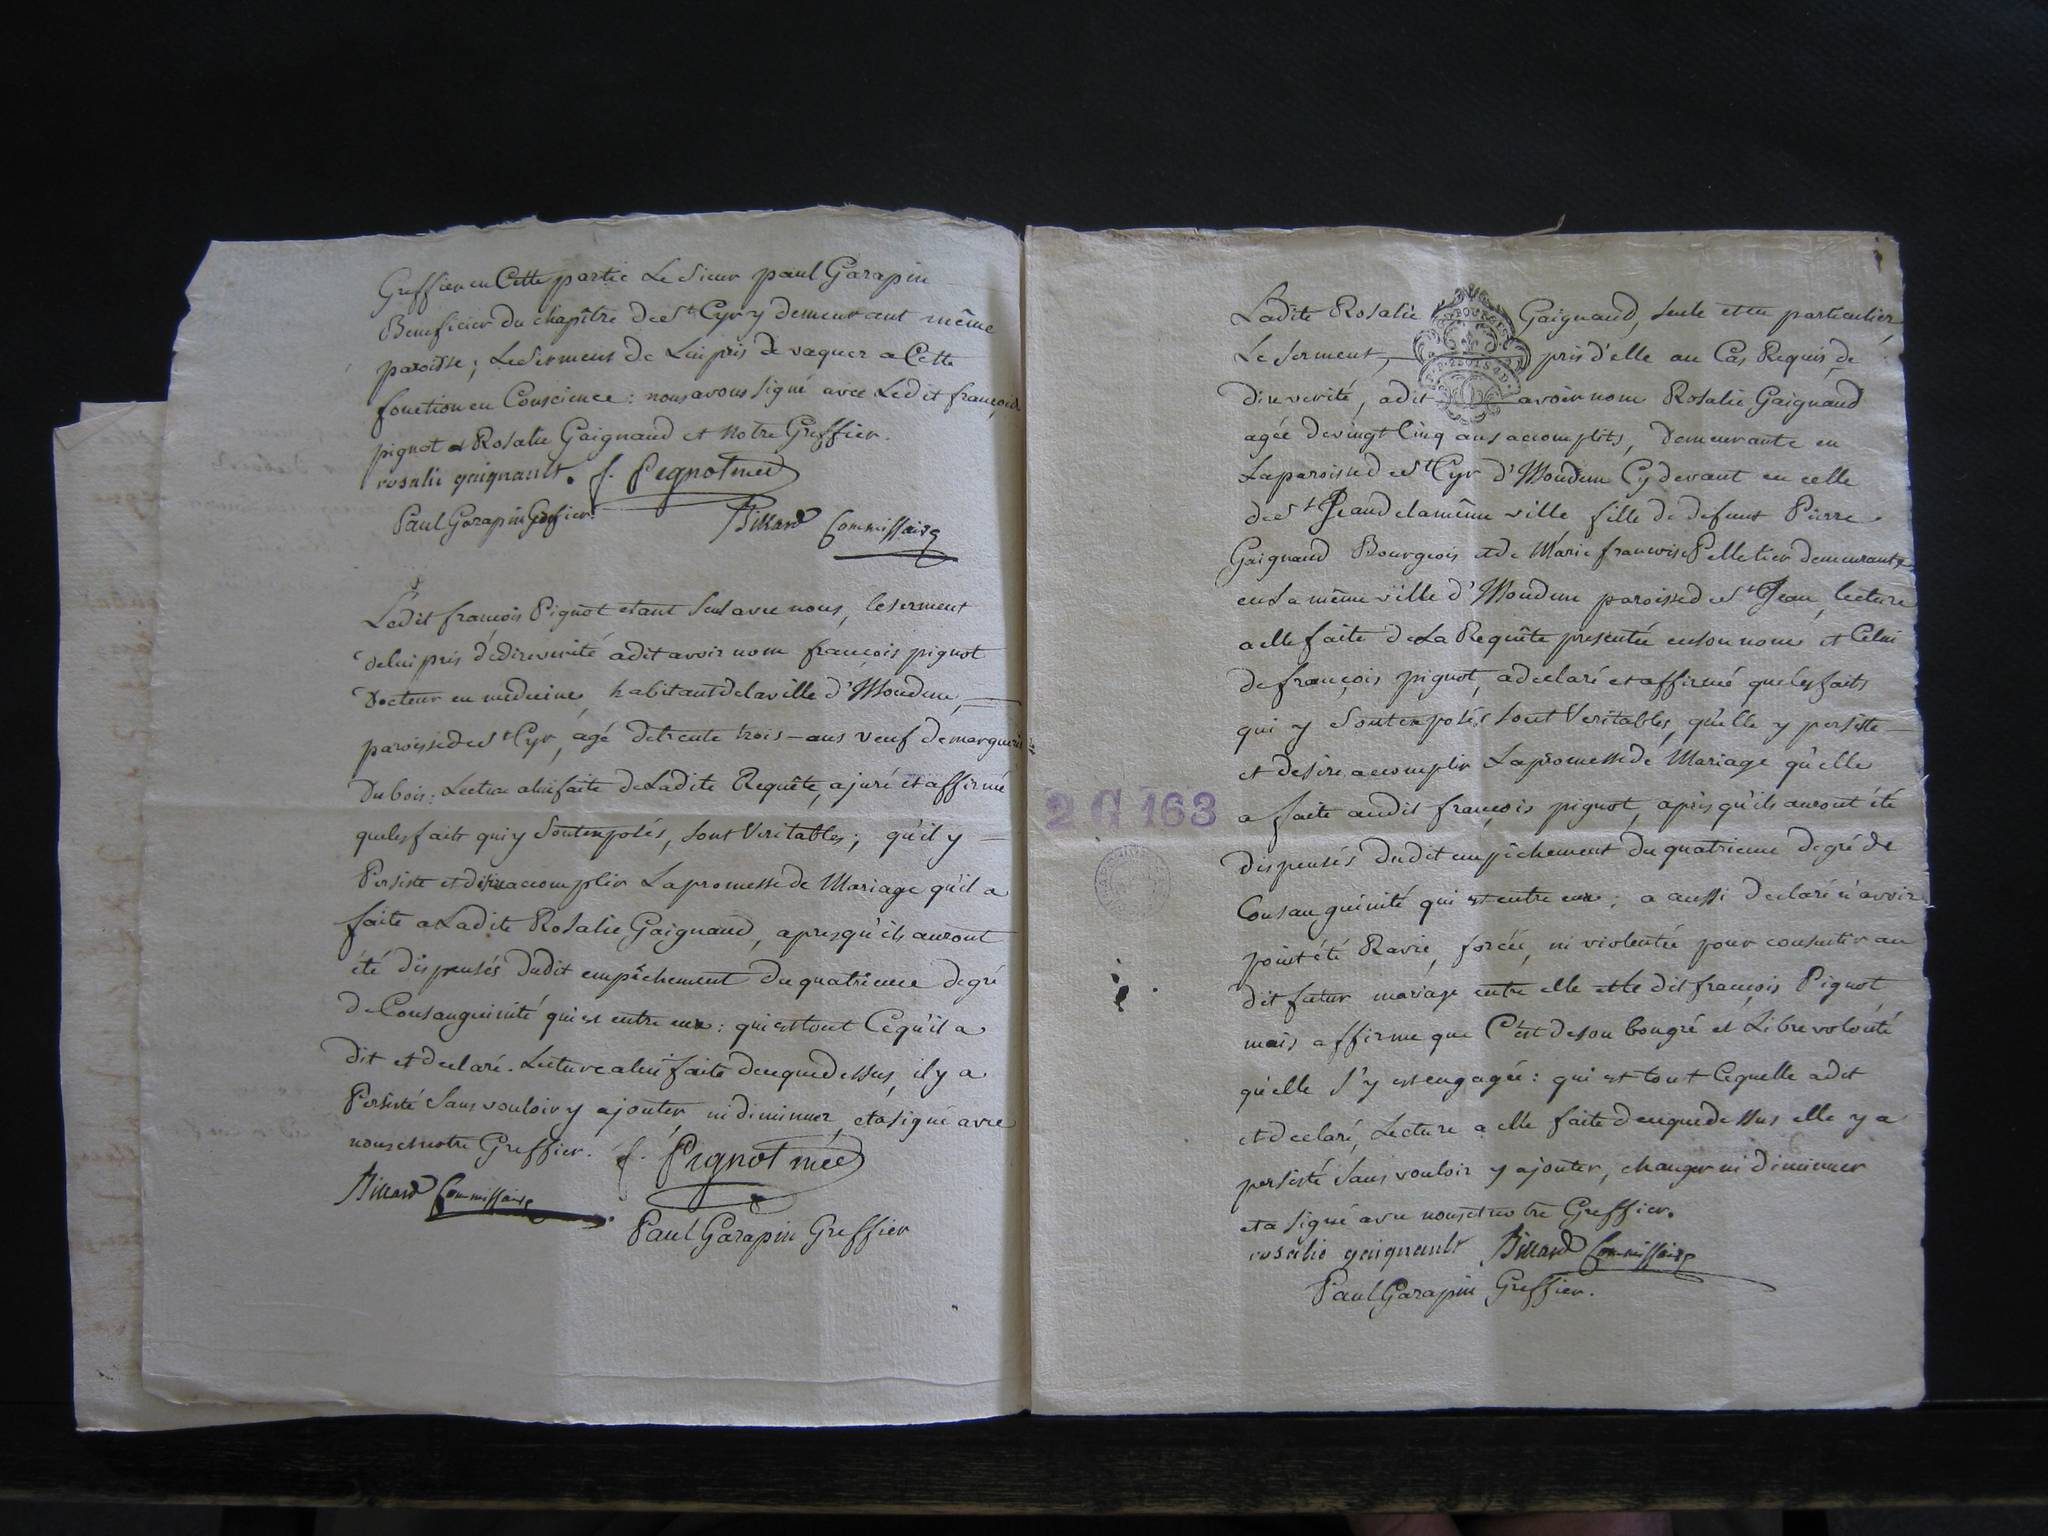 Greffier en Cette partie Le Sieur paul Garapin
Beneficier du chapître de St Cyr y demeurant même
paroisse; Le Serment de Lui pris de vaquer a Cette
fonction en Conscience: nous avons signé avec Ledit françois
pignot & Rosalie Gaignaud et Notre Greffier.
rosalie gaignault. f. Pignot med
Paul Garapin Greffier. Billard Commissaire
Ledit françois Pignot etant Seul avec nous, le serment
de lui pris de dire verité a dit avoir nom françois pignot
Docteur en medecine, habitant de la ville d'Yssoudun,
paroisse de St Cyr, agé de trente trois ans veuf de marguerite
Dubois: Lecture a lui faite de Ladite Requête, a juré et affirmé
que les faits qui y Sont exposés, sont Veritables; qu'il y
Persiste et desire accomplir La promesse de Mariage qu'il a
faite a Ladite Rosalie Gaignaud, apres qu'ils auront
été dispensés dudit empêchement du quatrieme degré
de Consanguinité qui est entre eux: qui est tout Ce qu'il a
dit et declaré. Lecture a lui faite de ce que dessus, il y a
Persisté Sans vouloir y ajouter, ni diminuer, et a signé avec
nous et notre Greffier. f. Pignot med
Billard Commissaire
Paul Garapin Greffier
2 G 163
Ladite Rosalie Gaignaud, seule et en particulier
Le Serment, pris d'elle au Cas Requis, de
dire verité, a dit avoir nom Rosalie Gaignaud
agée de vingt Cinq ans accomplits, demeurante en
La paroisse de St Cyr d'Yssoudun Cy devant en celle
de St Jean de la même ville fille de defunt Pierre
Gaignaud Bourgeois et de Marie francoise Pelletier demeurante
en La même ville d'Yssoudun paroisse de St Jean, lecture
a elle faite de La Requête presentée en son nom et Celui
de françois pignot, a declaré et affirmé que les faits
qui y Sont exposés sont Veritables, qu'elle y persiste
et desire accomplir La promesse de Mariage qu'elle
a faite audit françois pignot, après qu'ils auront été
dispensés dudit empêchement du quatrieme degré de
Consanguinité qui est entre eux; a aussi declaré n'avoir
point été Ravie, forcée, ni violentée pour consentir au
dit futur mariage entre elle et le dit françois Pignot,
mais affirme que C'est de son bon gré et Libre volonté
qu'elle s'y est engagée: qui est tout Ce quelle a dit
et declaré, Lecture a elle faite de ce que dessus elle y a
persisté Sans vouloir y ajouter, changer ni diminuer
et a signé avec nous et notre Greffier.
rosalie gaignault Billard Commissaire
Paul Garapin Greffier.